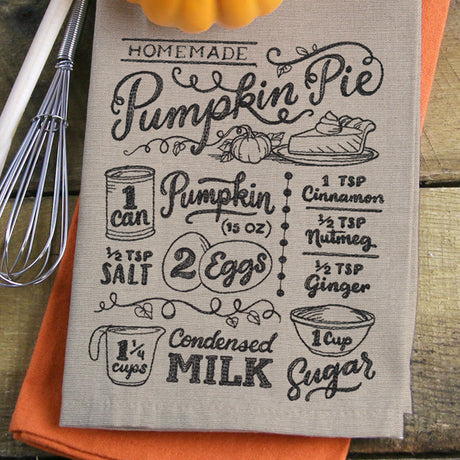 HOMEMADE
Pumpkin Pie
1 can
Pumpkin
(15 OZ)
1 TSP
Cinnamon
½ TSP
Nutmeg
½ TSP
SALT
2 Eggs
½ TSP
Ginger
1 ¼ cups
Condensed
MILK
1 Cup
Sugar